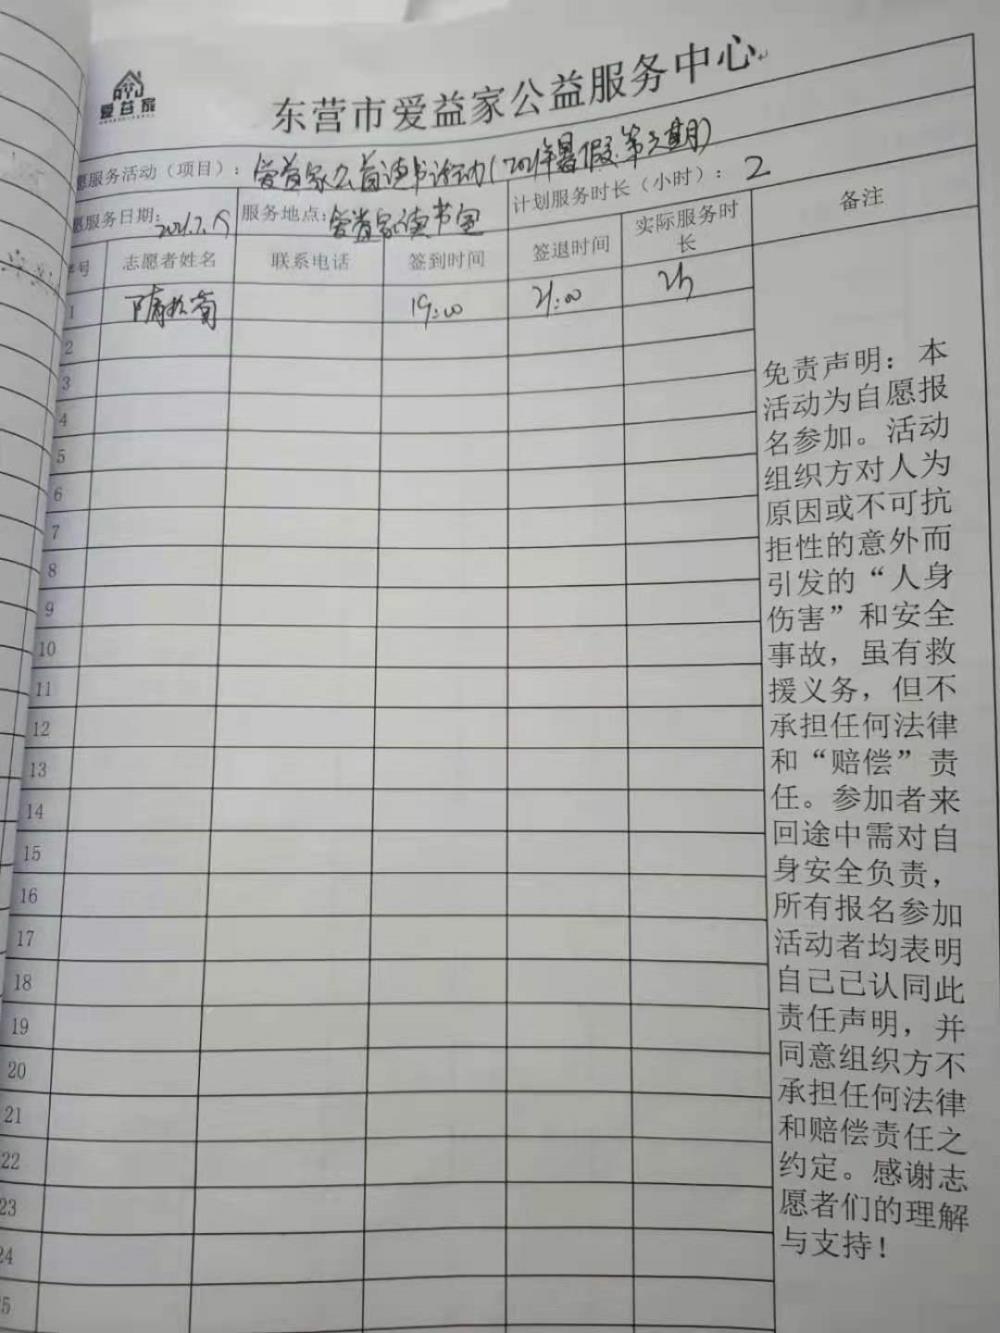 爱益家
东营市爱益家公益服务中心
愿服务活动（项目）：爱益家公益读书活动（2021年暑假第五期）
愿服务日期：2021.7. 服务地点：爱益家读书室 计划服务时长（小时）：2 备注
序号 志愿者姓名 联系电话 签到时间 签退时间 实际服务时长
1 19:00 21:00 2h
2
3
4
5
6
7
8
9
10
11
12
13
14
15
16
17
18
19
20
21
22
23
24
25
免责声明：本
活动为自愿报
名参加。活动
组织方对人为
原因或不可抗
拒性的意外而
引发的“人身
伤害”和安全
事故，虽有救
援义务，但不
承担任何法律
和“赔偿”责
任。参加者来
回途中需对自
身安全负责，
所有报名参加
活动者均表明
自己已认同此
责任声明，并
同意组织方不
承担任何法律
和赔偿责任之
约定。感谢志
愿者们的理解
与支持！